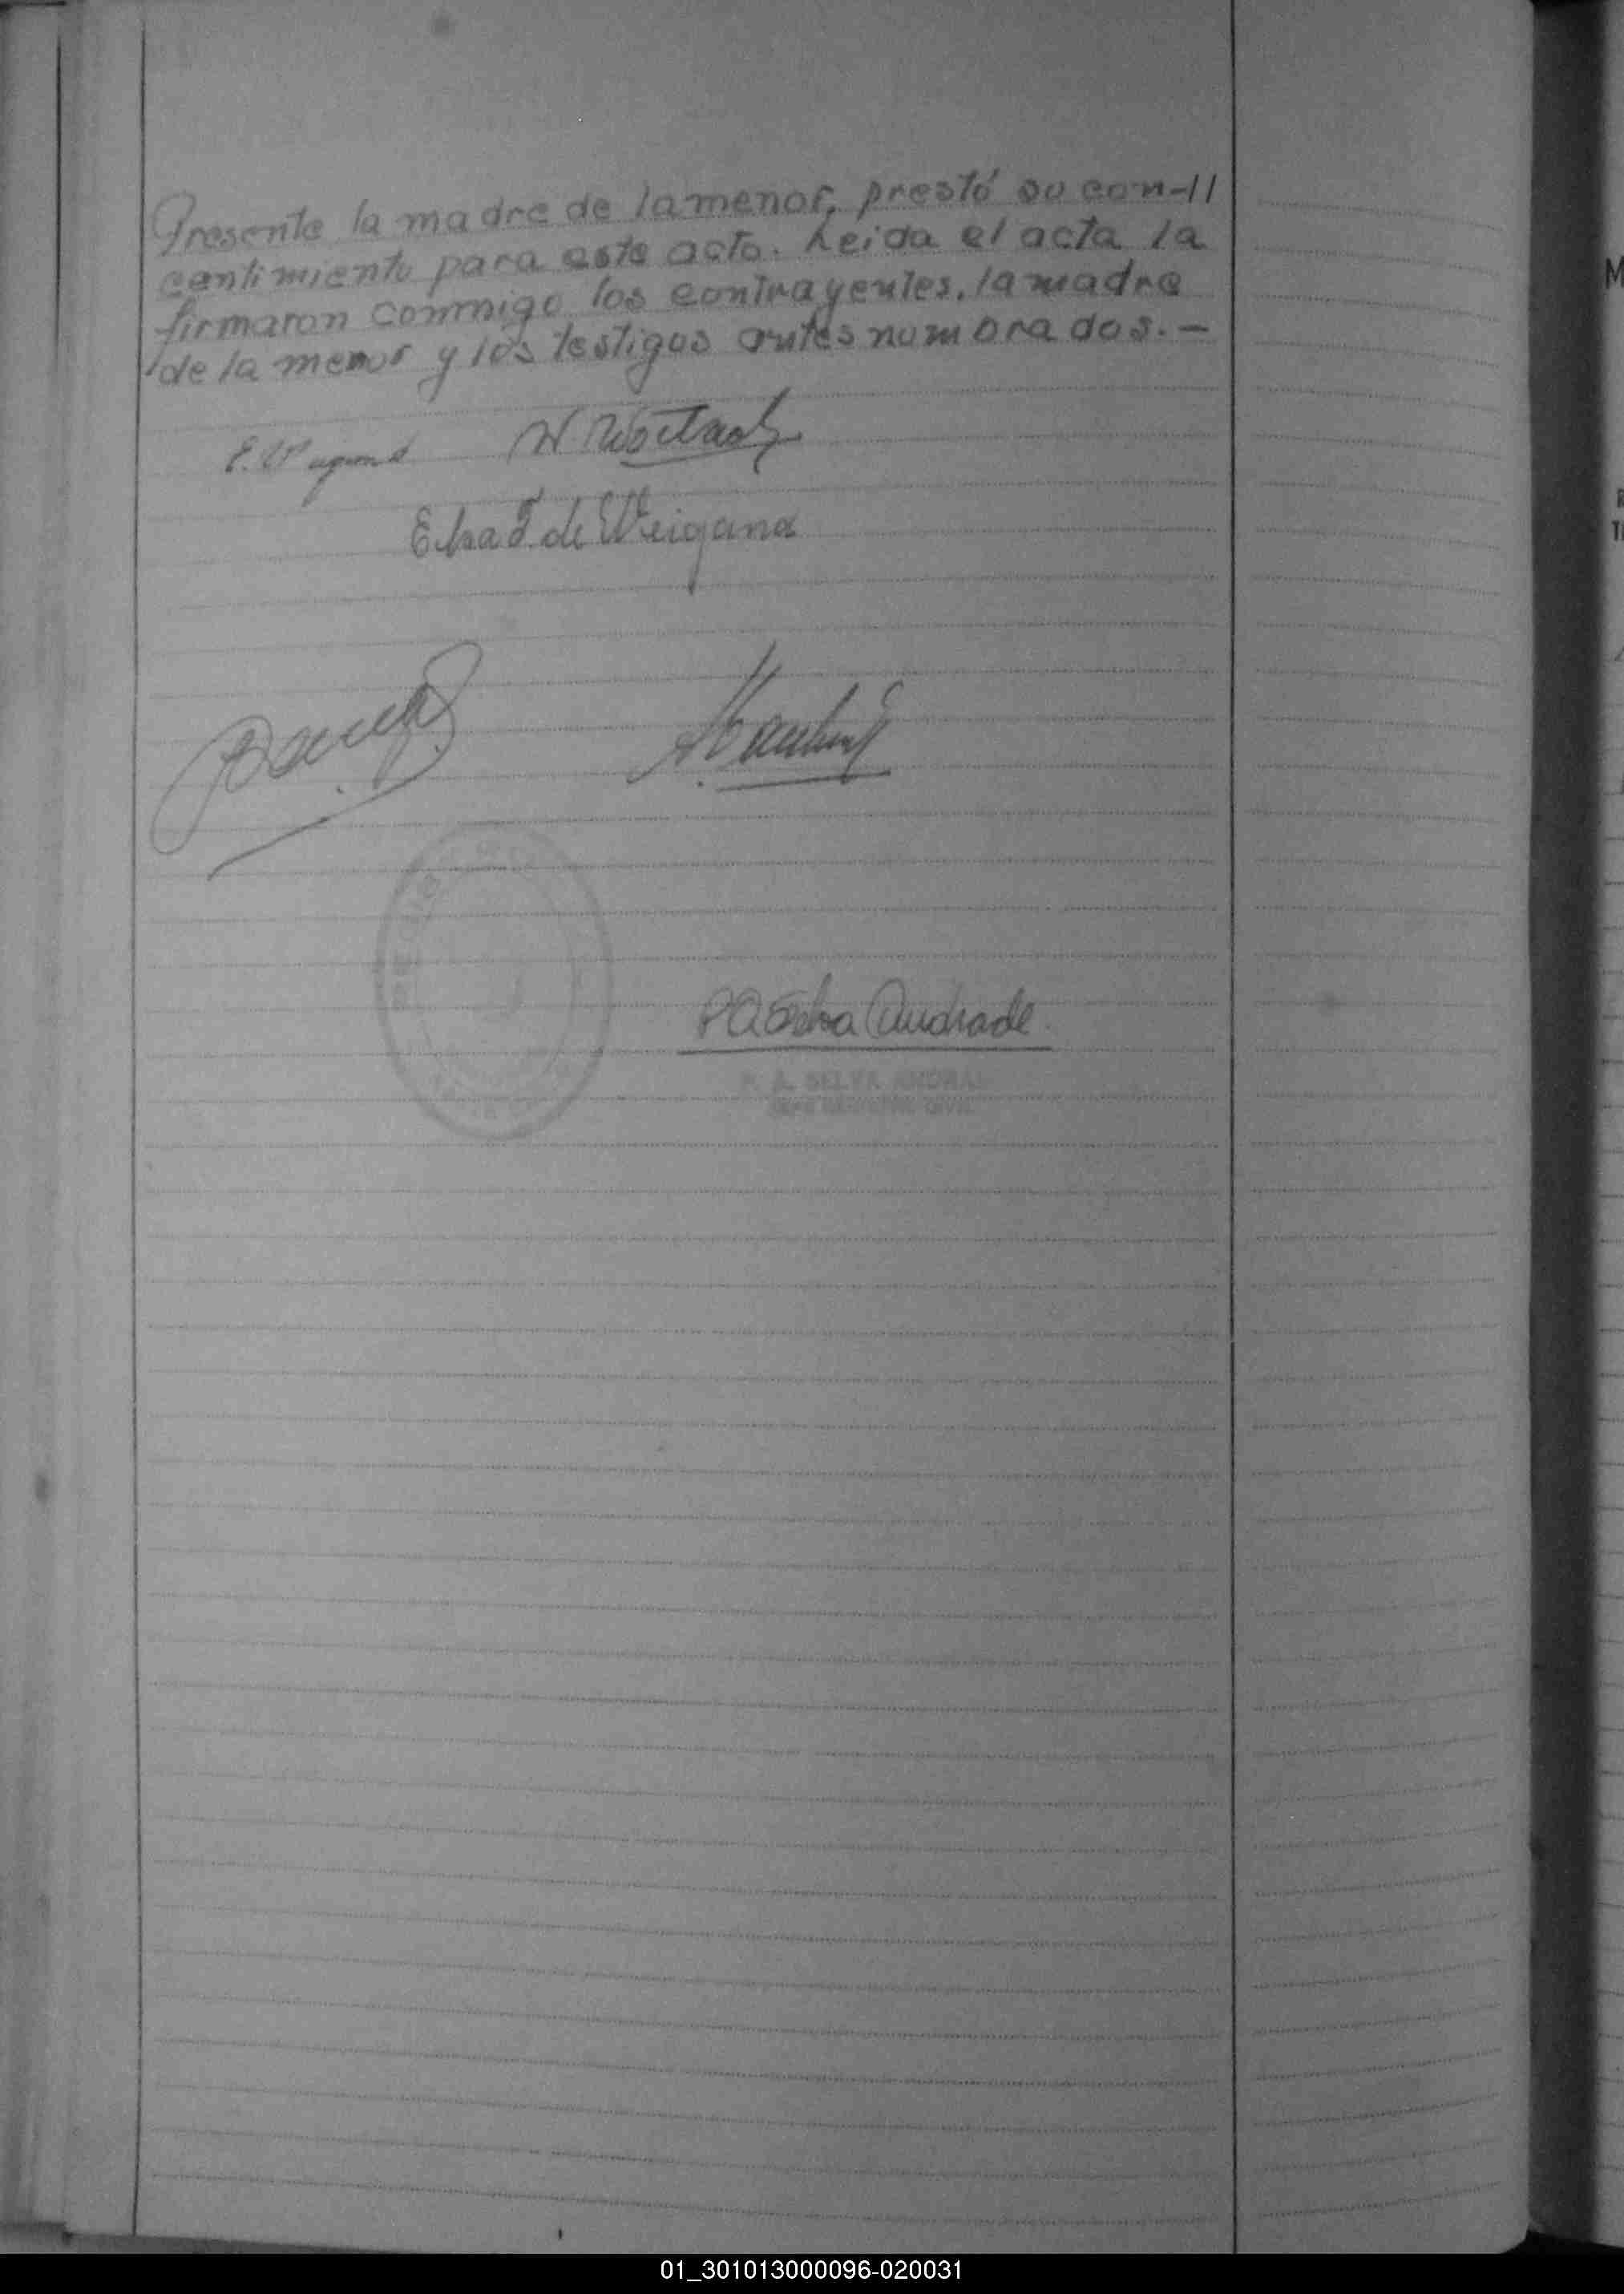 Presente la madre de la menor, prestó su con-//
centimiento para este acto. Leida el acta la
firmaron conmigo los contrayentes, la madre
de la menor y los testigos antes nombrados.-
E. Weigand
Elsa F. de Weigand
P A Selva Andrade
P. A. SELVA ANDRAD
JEFE REGISTRO CIVIL
01_301013000096-020031